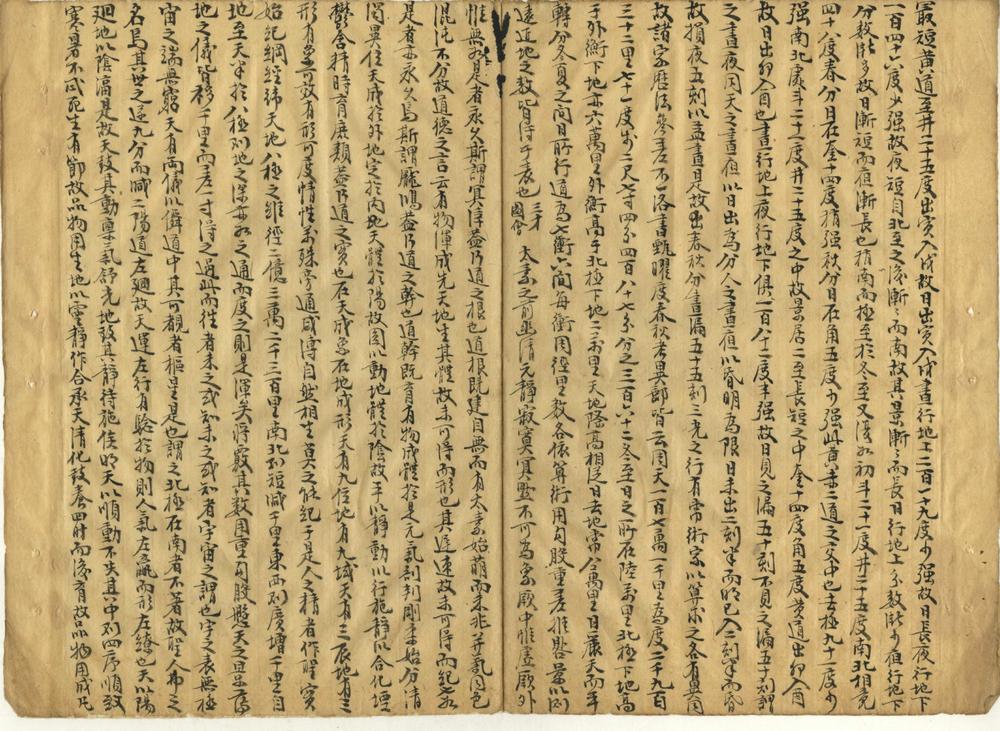 最短黃道至井二十五度出寅入戌故日出寅入戌晝行地上二百一十九度少强故日長夜行地下
一百四十六度少强故夜短自北至之後漸〻而南故其景漸〻而長日行地上分數能少夜行地下
分數能多故日漸短而夜漸長也稍南而極至於冬至又復如初斗二十一度井二十五度南北相
四十八度春分日在奎十四度稍强秋分日在角五度少强此黃赤二道之交中也去極九十一度少
强南北處斗二十一度井二十五度之中故景居二至長短之中奎十四度角五度黃道出卯入酉
故日出卯入酉也晝行地上夜行地下俱一百八十二度半强故日見之漏五十刻不見之漏五十刻謂
之晝夜同天之晝夜以日出為分人之晝夜以昏明為限日未出二刻半而明已入二刻半而昏
故損夜五刻以益晝是故出春秋分晝漏五十五刻三光之行有常術家以算求之各有異同
故諸家曆法參差不一洛書甄曜度春秋考異郵皆云周天一百七萬一千里為度二千九百
三十二里七十一度步二尺七寸四分四百八十七分分之三百六十二冬至日之所在陸万里北極下地高
于外衡下地亦六萬里外衡高于北極下地二万里天地隆高相従日去地常八萬里日麗天而平
轉分冬夏之間日所行道為七衡六間每衡周徑里數各依算術用句股重差推晷景以例
遠近地之數皆侍于表也 三才 太素之前幽清元靜寂寞冥默不可為象厥中惟虛厥外
惟無如是者永久斯謂冥滓盖乃道之根也道根既建自無而有太素始萌而未兆并氣同色
混沌不分故道德之言云有物渾成先天地生其體故未可得而形也其遲速故未可得而紀也如
是者亦永久焉斯謂龐鴻盖乃道之幹也道幹既育有物成體於是元氣剖判剛柔始分清
濁異位天成於外地定於內天體於陽故圓以動地體於陰故平以靜動以行施靜以合化堙
鬱含精時育庶類盖乃道之實也在天成象在地成形天有九位地有九域天有三辰地有三
形有象可效有形可度情性万殊旁通感薄自然相生莫之能紀于是人之精者作聖實
始紀綱經緯天地八極之維徑二億三萬二千三百里南北則短減千里東西則廣增千里自
地至天半於八極則地之深亦如之通而度之則是渾矣將覆其數用重句股懸天之景薄
地之儀皆移千里而差一寸得之過此而往者未之或知未之或知者宇宙之謂也宇之表無極
宙之端無窮天有兩儀以儛道中其可覩者樞星是也謂之北極在南者不著故聖人弗之
名焉其世之遂九分而減二陽道左廻故天運左行有驗於物則人氣左羸而形左繚也天以陽
廻地以陰淳是故天致其動稟氣舒光地致其靜持施俟明天以順動不失其中則四序順致
寒暑不忒死生有節故品物用生地以霊靜作合承天清化致養四時而後育故品物用成凡